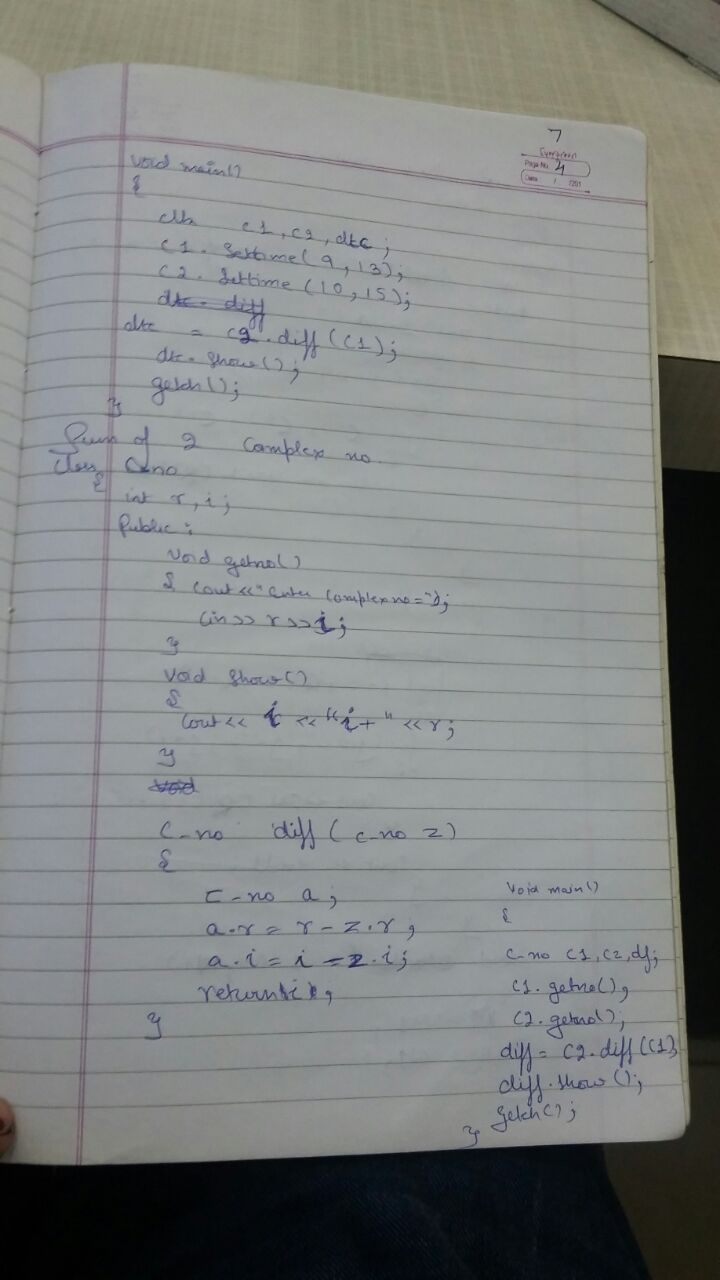 7
Evergreen
Page No. 4
Date / /201
void main()
{
clk c1, c2, dtc;
c1. Settime(9,13);
c2. Settime(10,15);
dtc. diff
dtc = c2.diff(c1);
dtc. show();
getch();
}
Sum of 2 Complex no
Class C-no
{
int r, i;
Public:
void getno()
{ cout<<"Enter Complex no=";
cin>> r>>i;
}
void show()
{
cout<< i <<"i+"<<r;
}
void
C-no diff ( c-no z)
{
c-no a;
a.r = r - z.r;
a.i = i - z.i;
return
}
void main()
{
c-no c1, c2, df;
c1. getno();
c2. getno();
diff = c2.diff(c1)
diff. show();
getch();
}